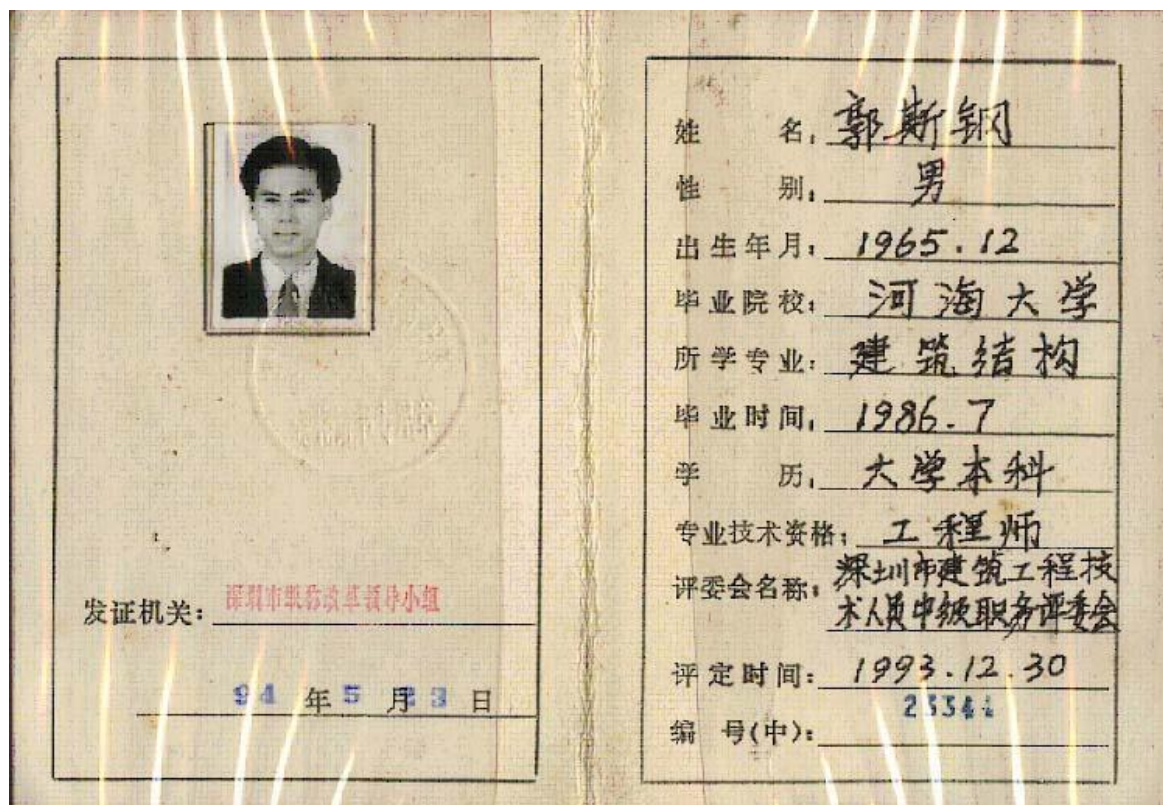 发证机关：深圳市职称改革领导小组
94年5月23日
姓名：郭斯钢
性别：男
出生年月：1965.12
毕业院校：河海大学
所学专业：建筑结构
毕业时间：1986.7
学历：大学本科
专业技术资格：工程师
评委会名称：深圳市建筑工程技
术人员中级职务评委会
评定时间：1993.12.30
编号(中)：23344